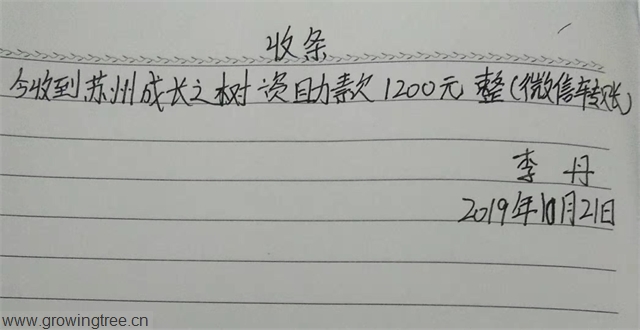 收条
今收到苏州成长之树资助款1200元整(微信转账)
李丹
2019年10月21日
www.growingtree.cn